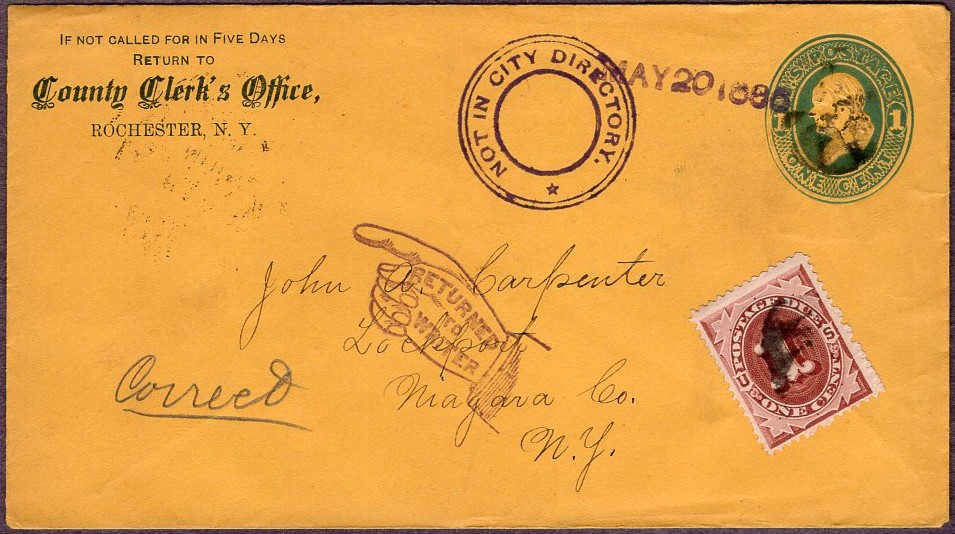 IF NOT CALLED FOR IN FIVE DAYS
RETURN TO
County Clerk's Office,
ROCHESTER, N. Y.
NOT IN CITY DIRECTORY.
MAY 20 1886
U.S. POSTAGE
1 1
ONE CENT
John A. Carpenter
Lockport
Niagara Co.
N.Y.
RETURNED
TO
WRITER
Correed
POSTAGE DUE
U.S.
ONE CENT